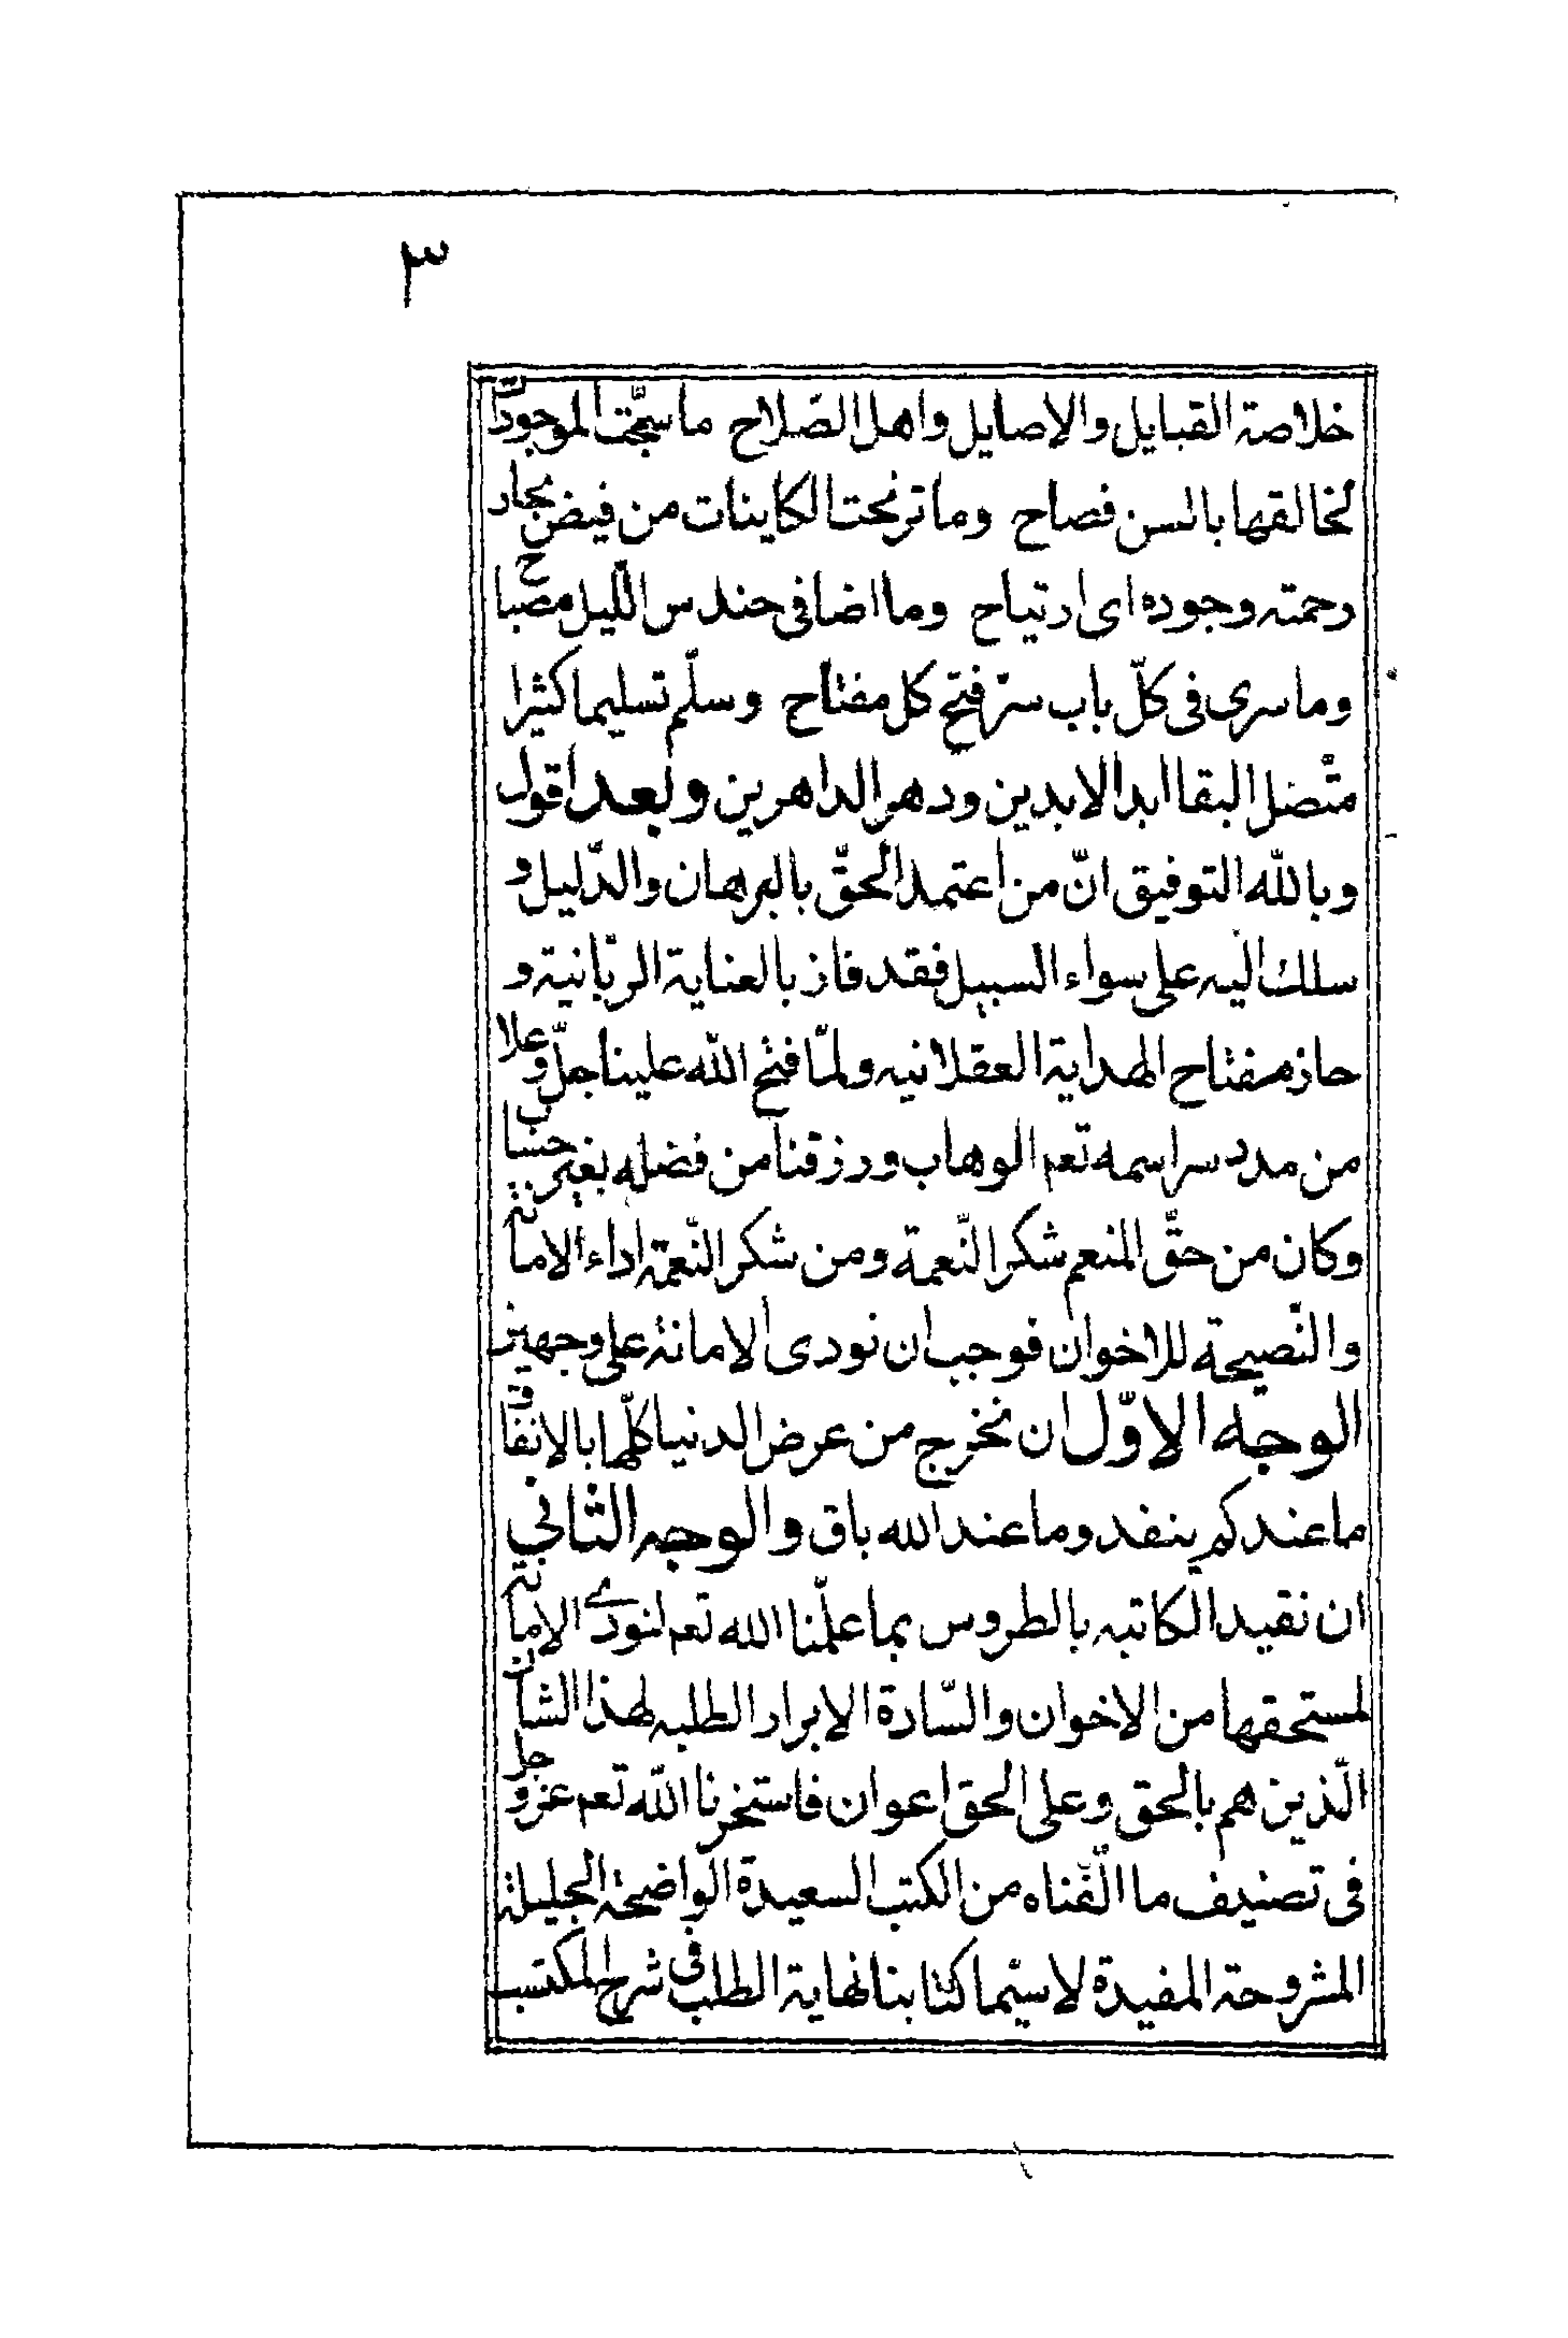 ٣
خلاصة القبايل والاصايل واهل الصّلاح ما سبّحت الموجودات
لخالقها بالسن فصاح وما ترنحت الكاينات من فيض بحار
رحمته وجوده اى ارتياح وما اضا فى حندس اللّيل مصباح
وما سرى فى كلّ باب سرّ فتح كل مفتاح وسلّم تسليما كثيرا
متّصل البقا ابد الابدين ودهر الداهرين وبعد اقول
وبالله التوفيق انّ من اعتمد الحقّ بالبرهان والدّليل و
سلك اليه على سواء السبيل فقد فاز بالعناية الربّانية و
حاز مفتاح الهداية العقلانيه ولمّا فتح الله علينا جلّ وعلا
من مدد سر اسمه تعم الوهاب ورزقنا من فضله بغير حساب
وكان من حقّ المنعم شكر النّعمة ومن شكر النّعمة اداء الامانة
والنّصيحة للاخوان فوجب ان نودى الامانة على وجهين
الوجه الاوّل ان نخرج من عرض الدنيا كلّها بالانفاق
ما عندكم ينفد وما عند الله باق والوجه الثاني
ان نقيد الكاتبه بالطروس بما علّمنا الله تعم لنودے الامانة
لمستحقها من الاخوان والسّادة الابرار الطلبه لهذا الشان
الّذين هم بالحق وعلى الحق اعوان فاستخرنا الله تعم عز وجل
فى تصنيف ما الّفناه من الكتب السعيدة الواضحة الجليلة
المشروحة المفيدة لا سيّما كتابنا نهاية الطلب فى شرح المكتسب